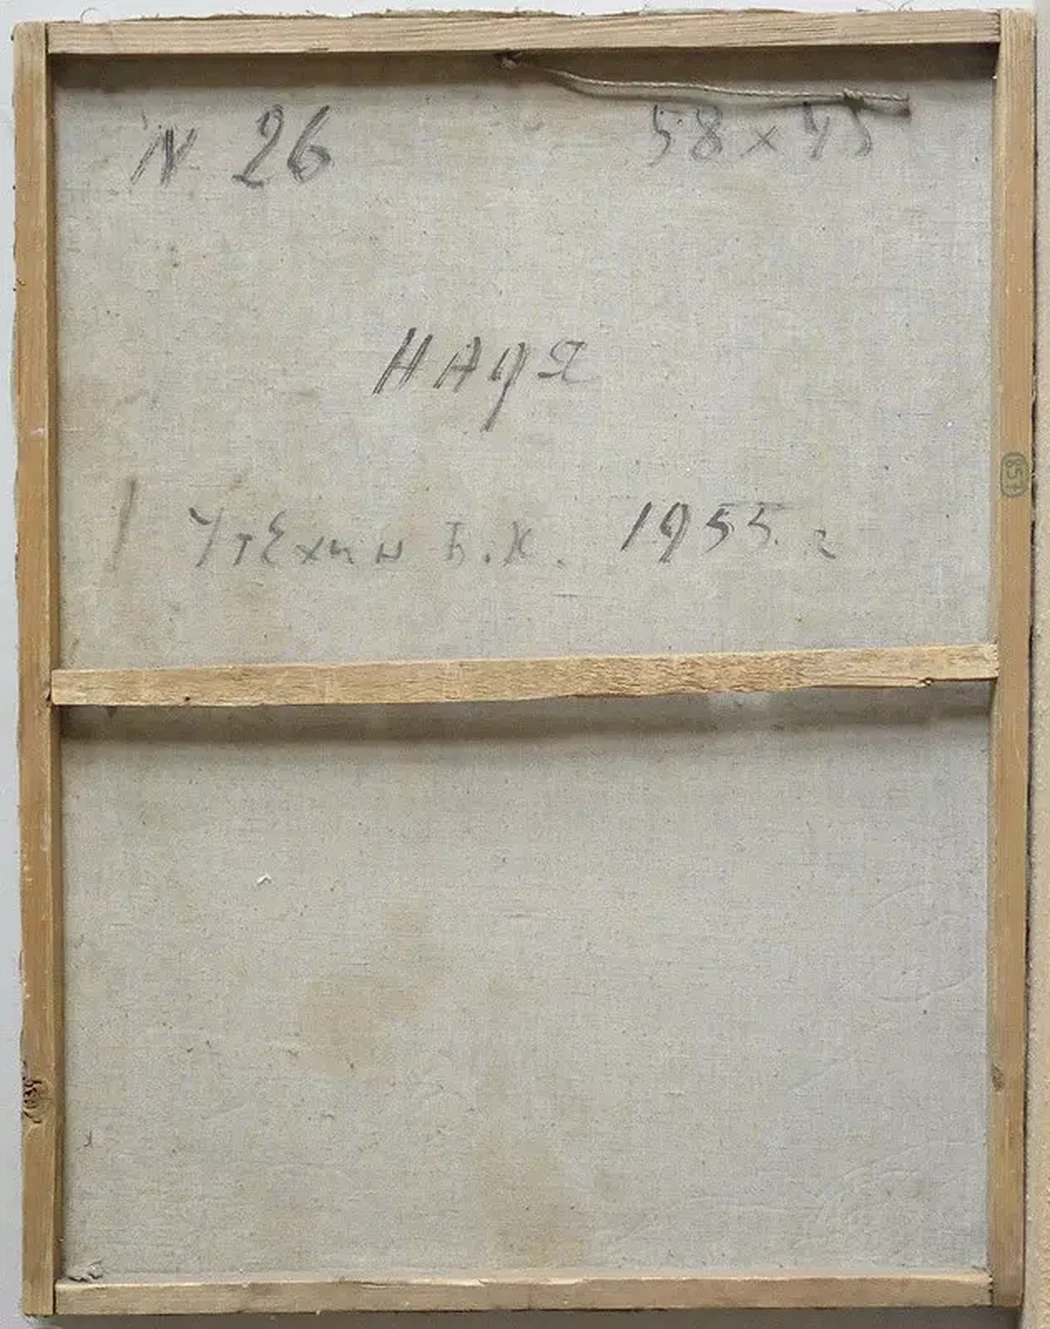 N 26 58 x 45
НАДЯ
УтЕхин Б.К. 1955 г
857